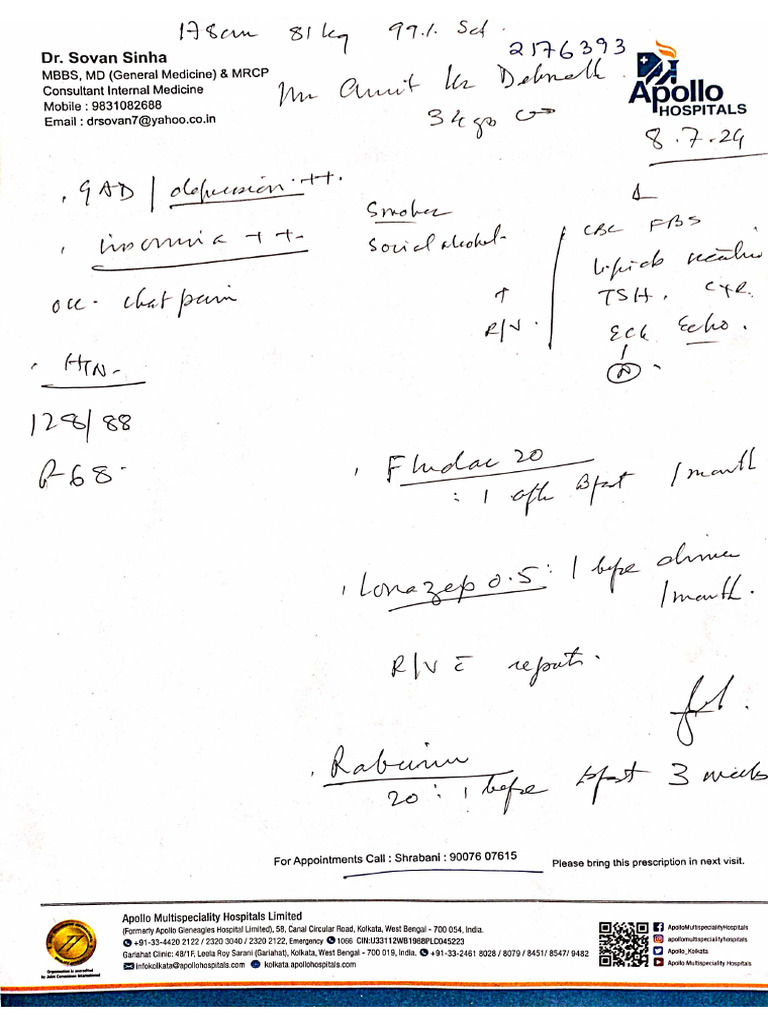 178cm 81kg 99% Sat.
2176393
Dr. Sovan Sinha
MBBS, MD (General Medicine) & MRCP
Consultant Internal Medicine
Mobile : 9831082688
Email : drsovan7@yahoo.co.in
Mr Amit Kr Debnath
34 yrs
Apollo
HOSPITALS
8.7.24
GAD / depression ++.
insomnia ++.
occ. chest pain
HTN.
128/88
P-68.
Smoker
Social alcohol.
R/V.
CBC FBS
Lipids
TSH.
ECG Echo.
N
Fludac 20
: 1 after Bfast 1 month
Lonazep 0.5 : 1 before dinner
1 month.
R/V c̄ reports.
20 : 1 before bfast 3 weeks
For Appointments Call : Shrabani : 90076 07615
Please bring this prescription in next visit.
Apollo Multispeciality Hospitals Limited
(Formerly Apollo Gleneagles Hospital Limited), 58, Canal Circular Road, Kolkata, West Bengal - 700 054, India.
+91-33-4420 2122 / 2320 3040 / 2320 2122, Emergency 1066 CIN:U33112WB1988PLC045223
Gariahat Clinic: 48/1F, Leela Roy Sarani (Gariahat), Kolkata, West Bengal - 700 019, India. +91-33-2461 8028 / 8079 / 8451/ 8547/ 9482
infokolkata@apollohospitals.com kolkata.apollohospitals.com
Organisation is accredited
by Joint Commission International
ApolloMultispecialityHospitals
apollomultispecialityhospitals
Apollo_Kolkata
Apollo Multispeciality Hospitals